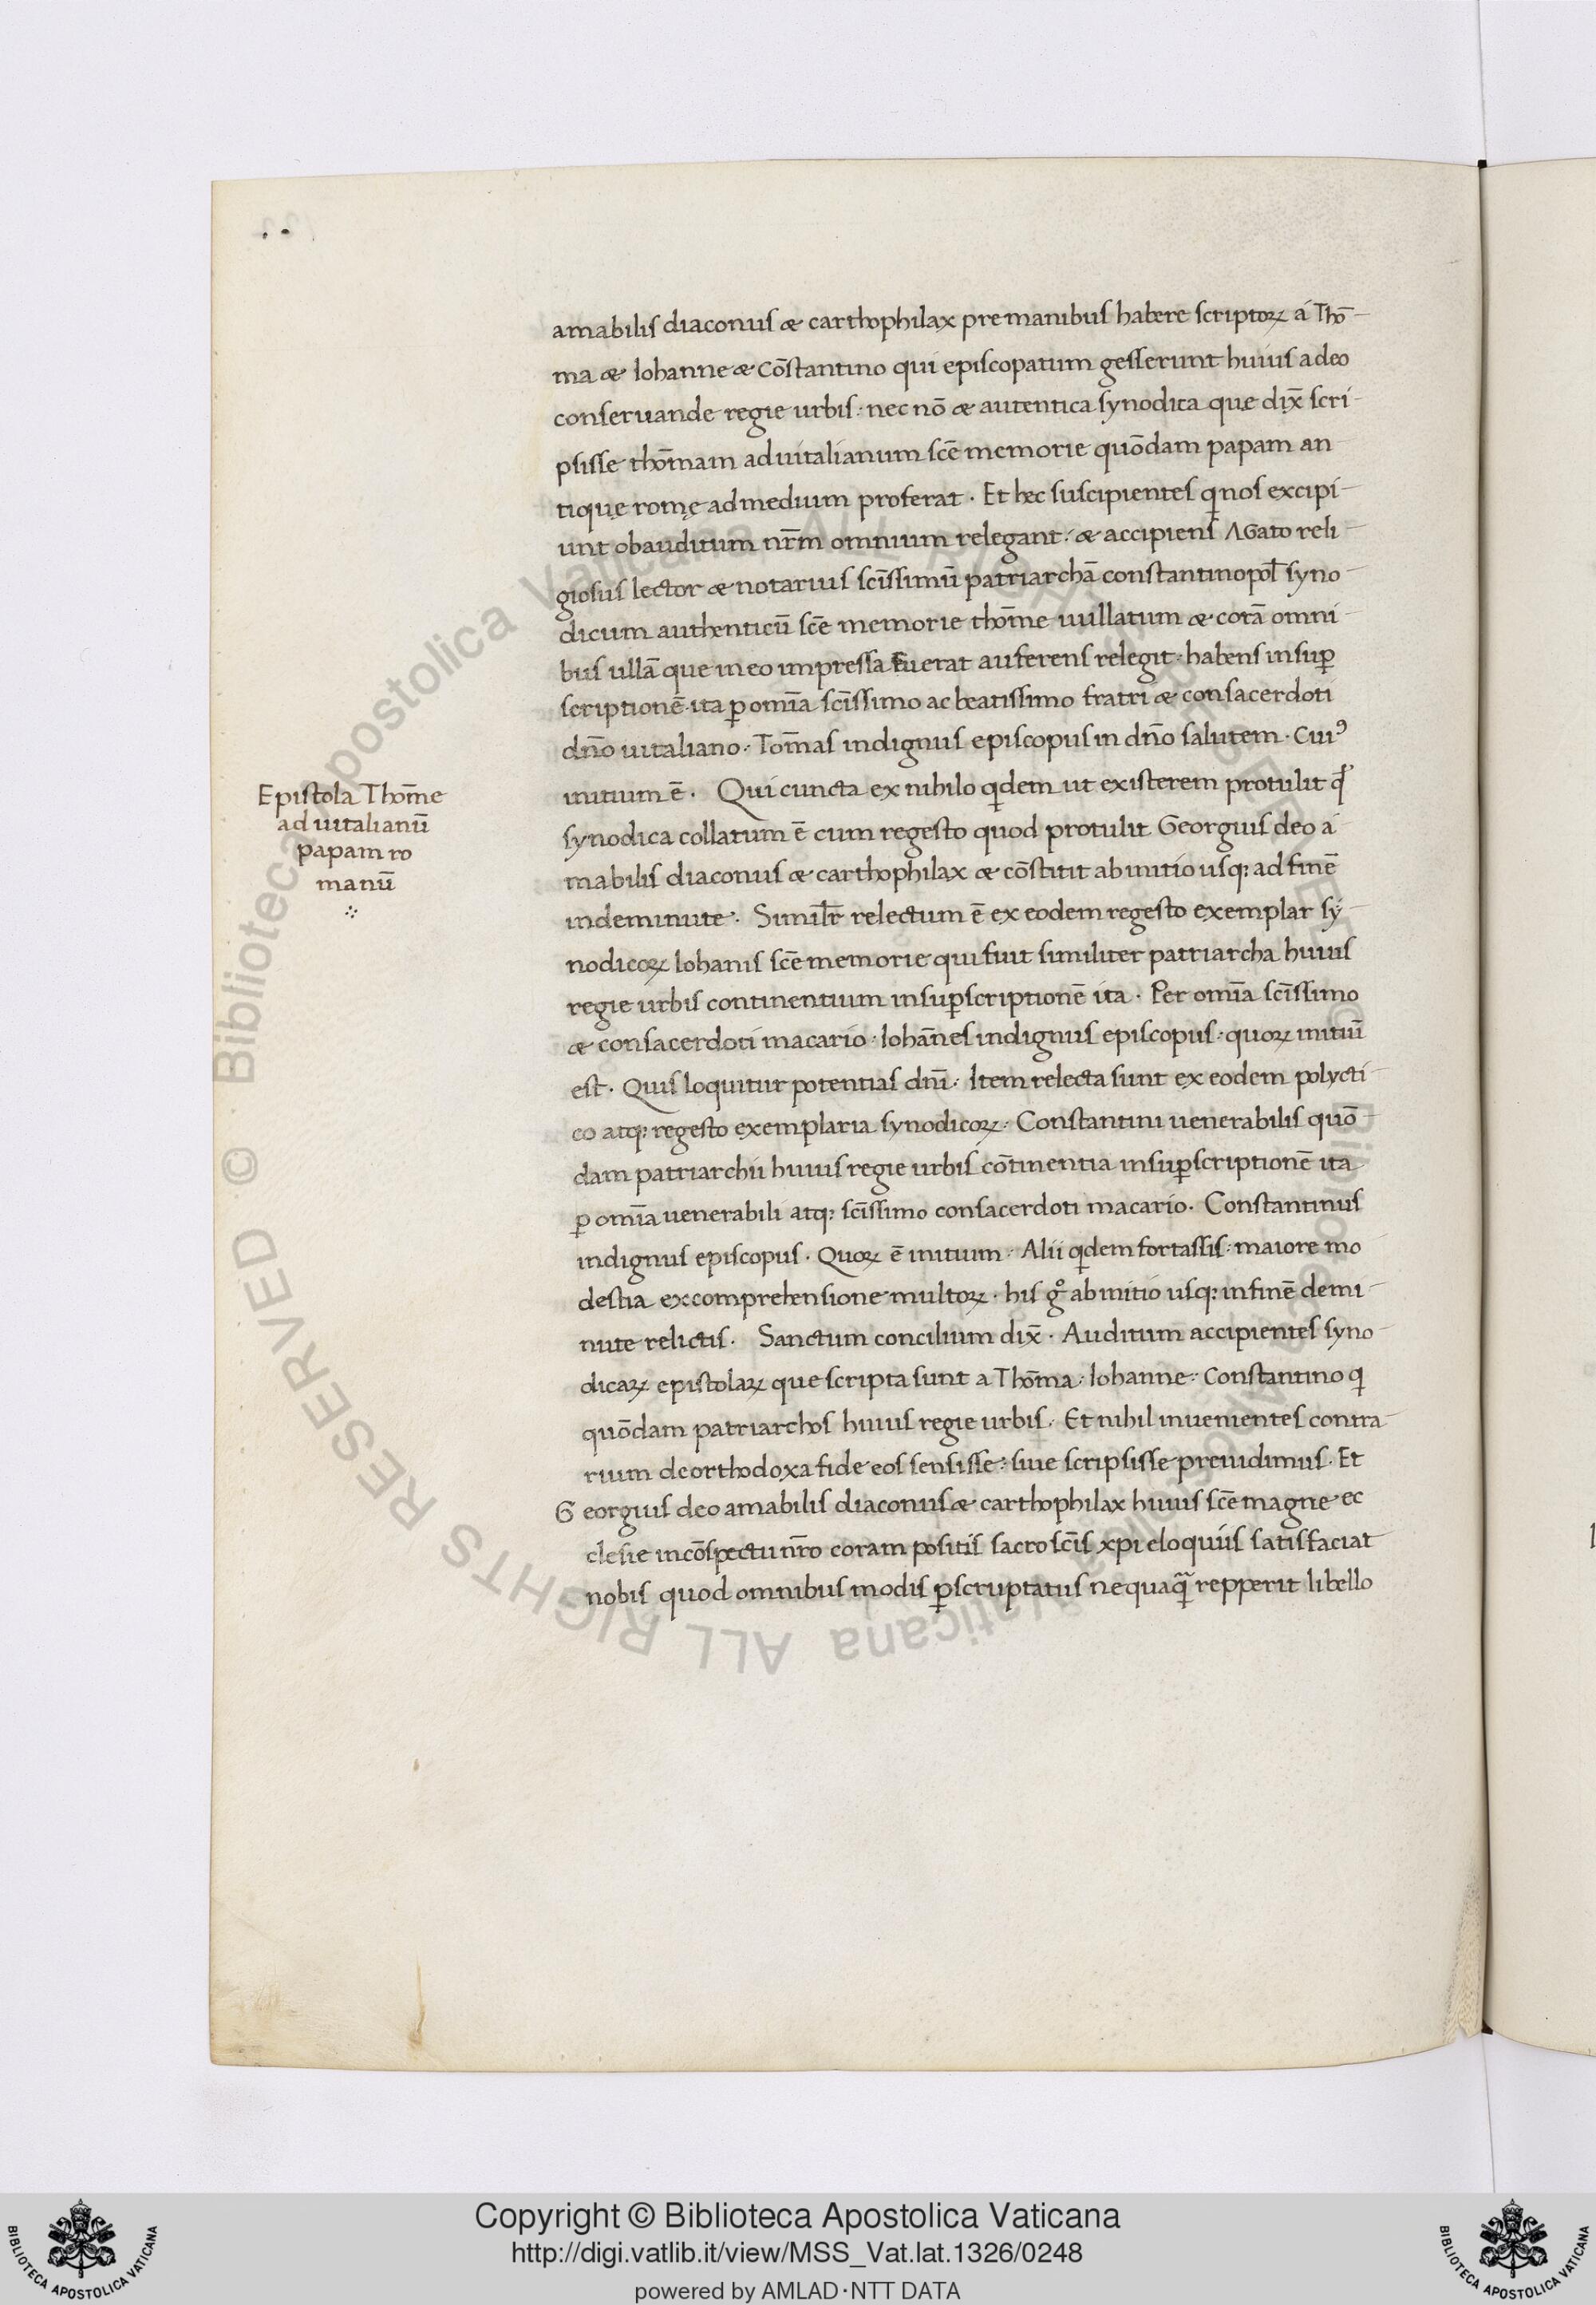 amabilis diaconus & carthophilax pre manibus habere scriptoꝝ á Thō
ma & Iohanne & Cōstantino qui episcopatum gesserunt huius a deo
conseruande regie urbis: nec nō & autentica synodica quę dix̄ scri
psisse thōmam ad uitalianum scē memorie quōdam papam an
tiquę romę ad medium proferat. Et hec suscipientes qͥ nos excipi
unt obauditum nr̄m omnium relegant: & accipiens AGato reli
giosus lector & notarius scīssimū patriarchā constantinopoł syno
dicum authenticū scē memorie thōme uullatum & corā omni
bus ullā que in eo impressa Fuerat auferens relegit: habens insuꝑ
scriptionē ita ꝑ omīa scīssimo ac beatissimo fratri & consacerdoti
dn̄o uitaliano: Tom̄as indignus episcopus in dn̄o salutem. Cuiꝰ
initium ē. Qui cuncta ex nihilo qͥdem ut existerem protulit qď
synodica collatum ē cum regesto quod protulit Georgius deo a
mabilis diaconus & carthophilax & cōstitit ab initio usqꝫ ad finē
indeminute: Similr̄ relectum ē ex eodem regesto exemplar sy
nodicoꝝ Iohanis scē memorie qui fuit similiter patriarcha huius
regie urbis continentium insuꝑscriptionē ita. Per omīa scīssimo
& consacerdoti macario: Iohān̄es indignus episcopus: quoꝝ initiū
est. Quis loquitur potentias dn̄i: Item relecta sunt ex eodem polycti
co atqꝫ regesto exemplaria synodicoꝝ: Constantini uenerabilis quō
dam patriarchii huius regie urbis cōtinentia insuꝑscriptionē ita
ꝑ omīa uenerabili atqꝫ scīssimo consacerdoti macario. Constantinus
indignus episcopus. Quoꝝ ē initium: Alii qͥdem fortassis: maiore mo
destia ex comprehensione multoꝝ. his gͦ ab initio usqꝫ in finē demi
nute relictis. Sanctum concilium dix̄. Auditum accipientes syno
dicaꝝ epistolaꝝ que scripta sunt a Thōma: Iohanne: Constantino qͥ
quōdam patriarchos huius regie urbis. Et nihil inuenientes contra
rium de orthodoxa fide eos sensisse: siue scripsisse preuidimus. Et
Georgius deo amabilis diaconus & carthophilax huius scē magne ec
clesie in cōspectu nr̄o coram positis sacro scīs xpi eloquiis satisfaciat
nobis quod omnibus modis ꝑscruptatus nequaqͣ̄ repperit libello
Epistola Thōme
ad uitalianū
papam ro
manū
© Biblioteca Apostolica Vaticana ALL RIGHTS RESERVED
© Biblioteca Apostolica Vaticana ALL RIGHTS RESERVED
Copyright © Biblioteca Apostolica Vaticana
http://digi.vatlib.it/view/MSS_Vat.lat.1326/0248
powered by AMLAD·NTT DATA
BIBLIOTECA APOSTOLICA VATICANA
BIBLIOTECA APOSTOLICA VATICANA